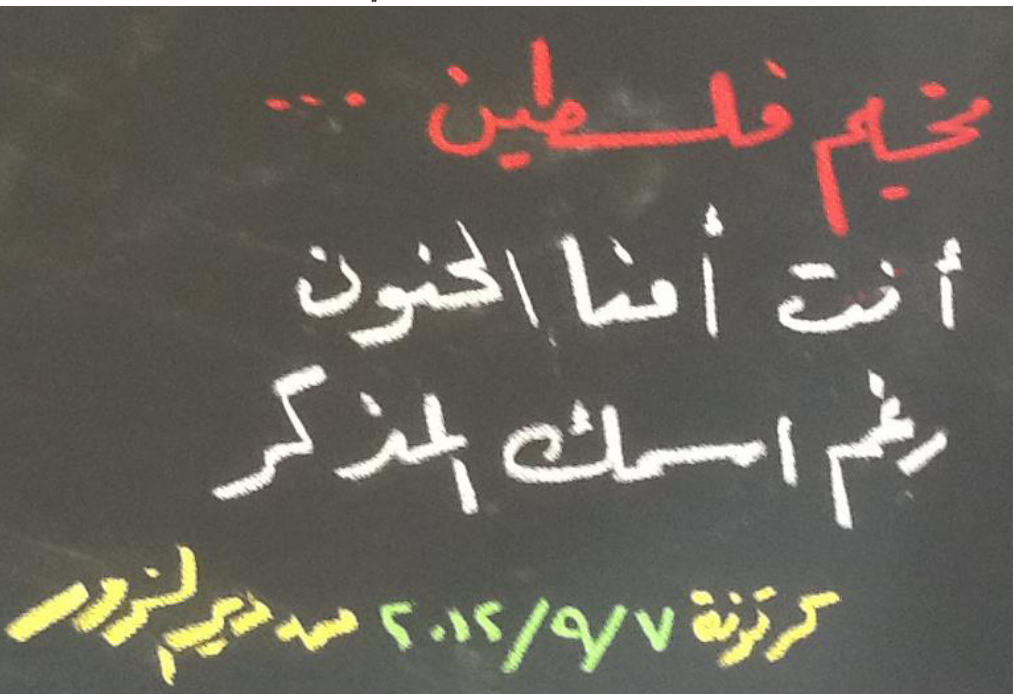 مخيم فلسطين ...
أنت أمنا الحنون
رغم اسمك المذكر
كرتونة ٢٠١٢/٩/٧ من ديرالزور